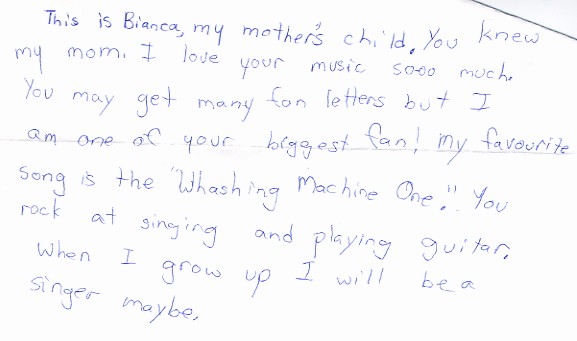 This is Bianca, my mother's child. You knew
my mom. I love your music sooo much.
You may get many fan letters but I
am one of your biggest fan! my favourite
song is the "Whashing Machine One." You
rock at singing and playing guitar.
When I grow up I will be a
singer maybe.